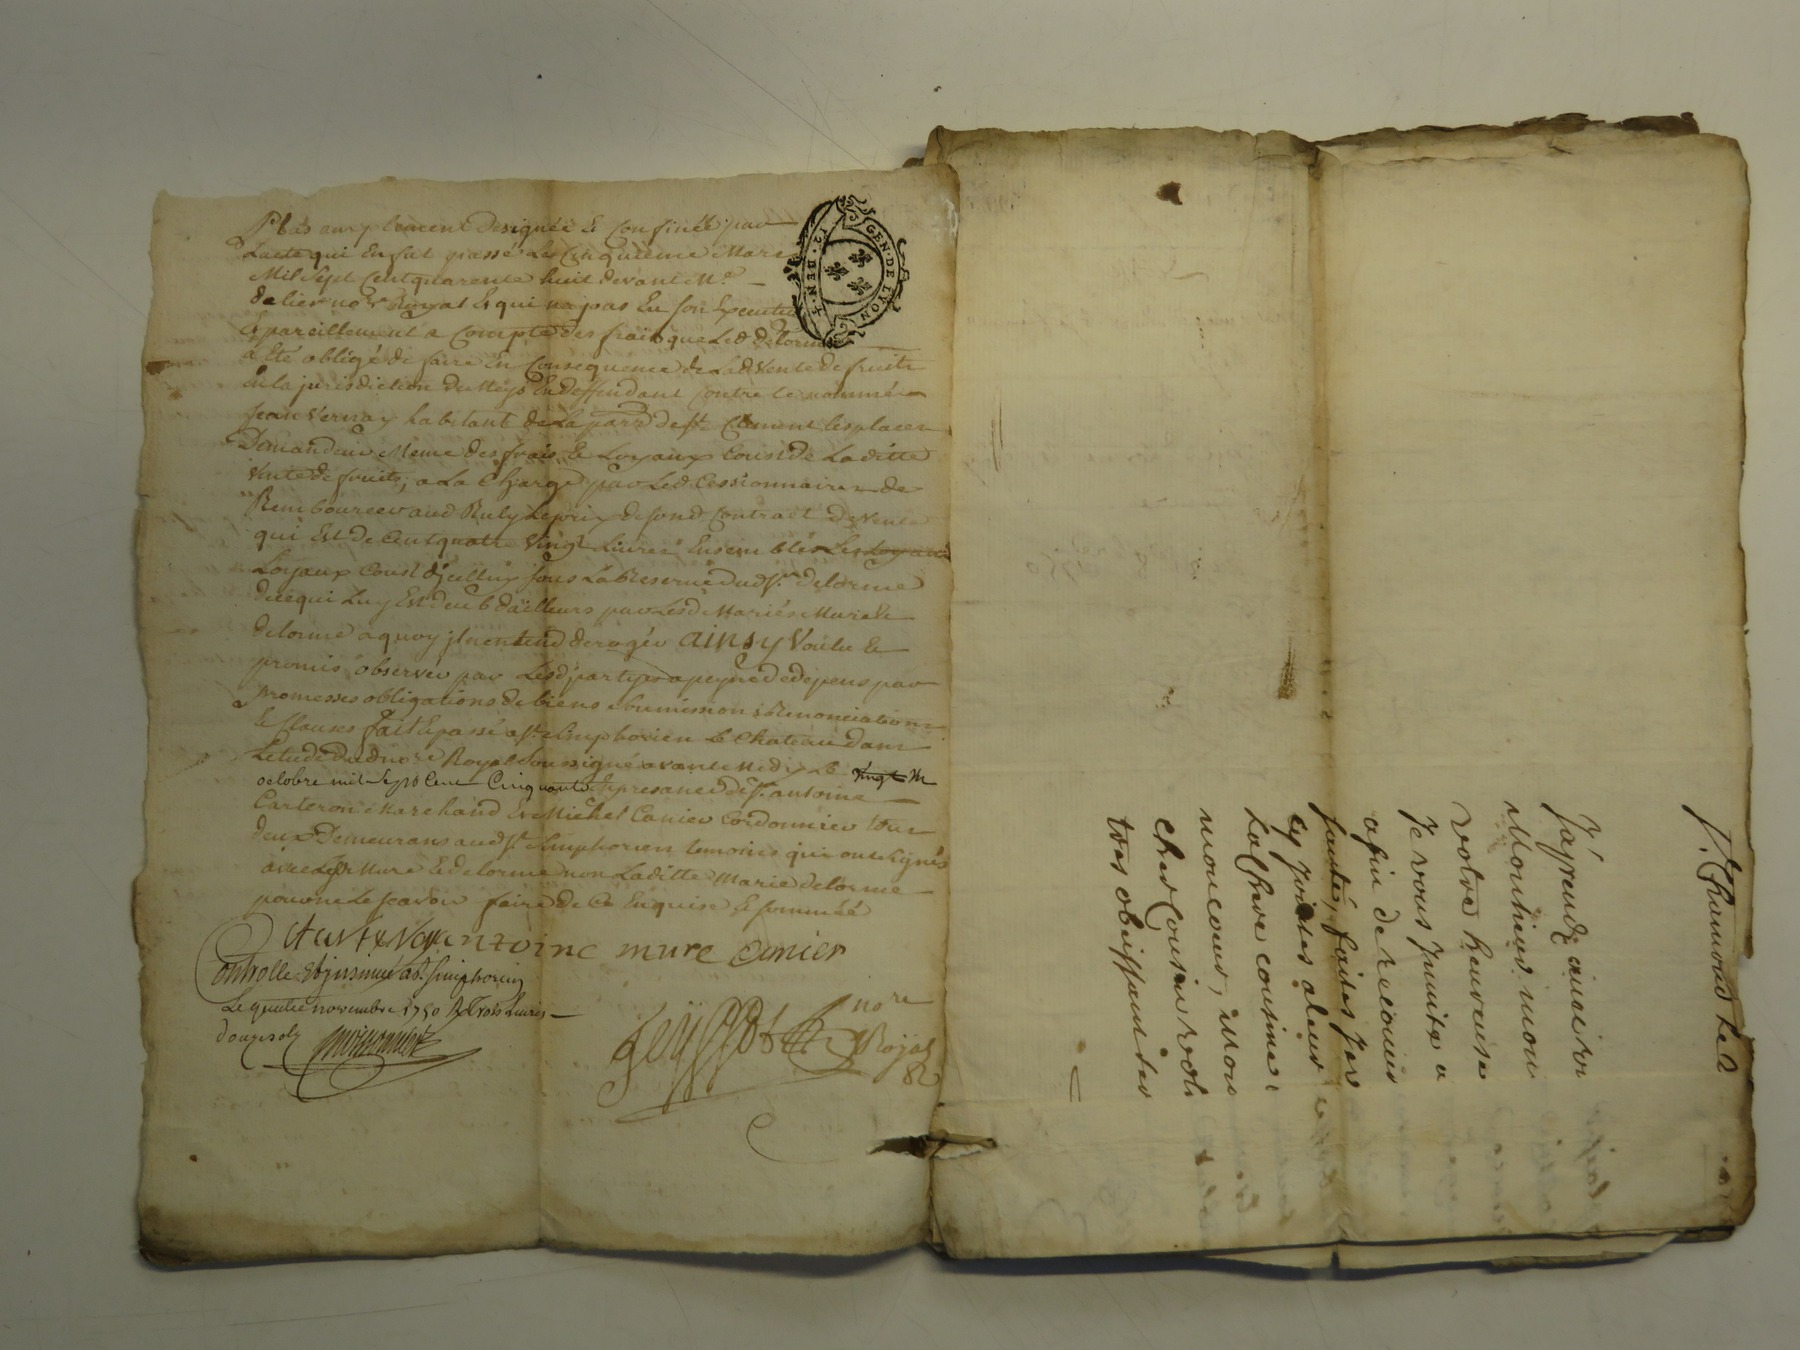 Plus amplement designée & Confinée par
Lacte qui En fut passé Le Cinquieme Mars
Mil Sept Cent quarente huit devant Me
dalier nore Royal & qui na pas Eu son Execution
& pareillement a Compte des frais que Led delorme
a Eté obligé de faire En Consequence de Lad Vente de fruits
En la jurisdiction de Meys En deffendant Contre le nommé
Jean Vernay habitant de La parr de St Clement les places
Demandeur Meme des frais & Loyaux Coust de Laditte
Vente de fruits, a La Charge par Led Cessionnaire de
Rembourcer aud Ruly Le prix de son d Contract de Vente
qui Est de Cent quatre Vingt Livres Ensembles Les Loyaux
Loyaux Coust djcelluy sous La Reserve dud Sr delorme
de ce qui Luy Est deub dailleurs par Lesd Mariés Mure &
delorme a quoy jl nentend deroger AINSY Voulu &
promis observer par Lesd partyes a peyne de depens par
promesses obligations de biens soumission & Renonciations
& Clauses fait & passé a St Simphorien Le Chateau dans
Letude dud nore Royal Soussigné avant Midy Le vingt
octobre mil Sept Cent Cinquante En presance de Sr antoine
Carteron Marchand & Michel Canier Cordonnier tous
deux Demeurans aud St Simphorien temoins qui ont Signés
avec Led Mure & delorme non Laditte Marie delorme
pour ne Le scavoir faire de Ce Enquise & sommée
antoine mure canier
Controllé & jnsinué a St Simphorien
Le quatre novembre 1750 Rd trois Livres
douze sols
nore
Royal
GEN · DE LYON
J'aprends
Monsieur mon
votre heureuse
Je vous jnvite a
afin de
santé, faites
cy jointes a leur
La chere cousine
mon coeur, mon
cher cousin
tres obeissante
St Chamond Le 2